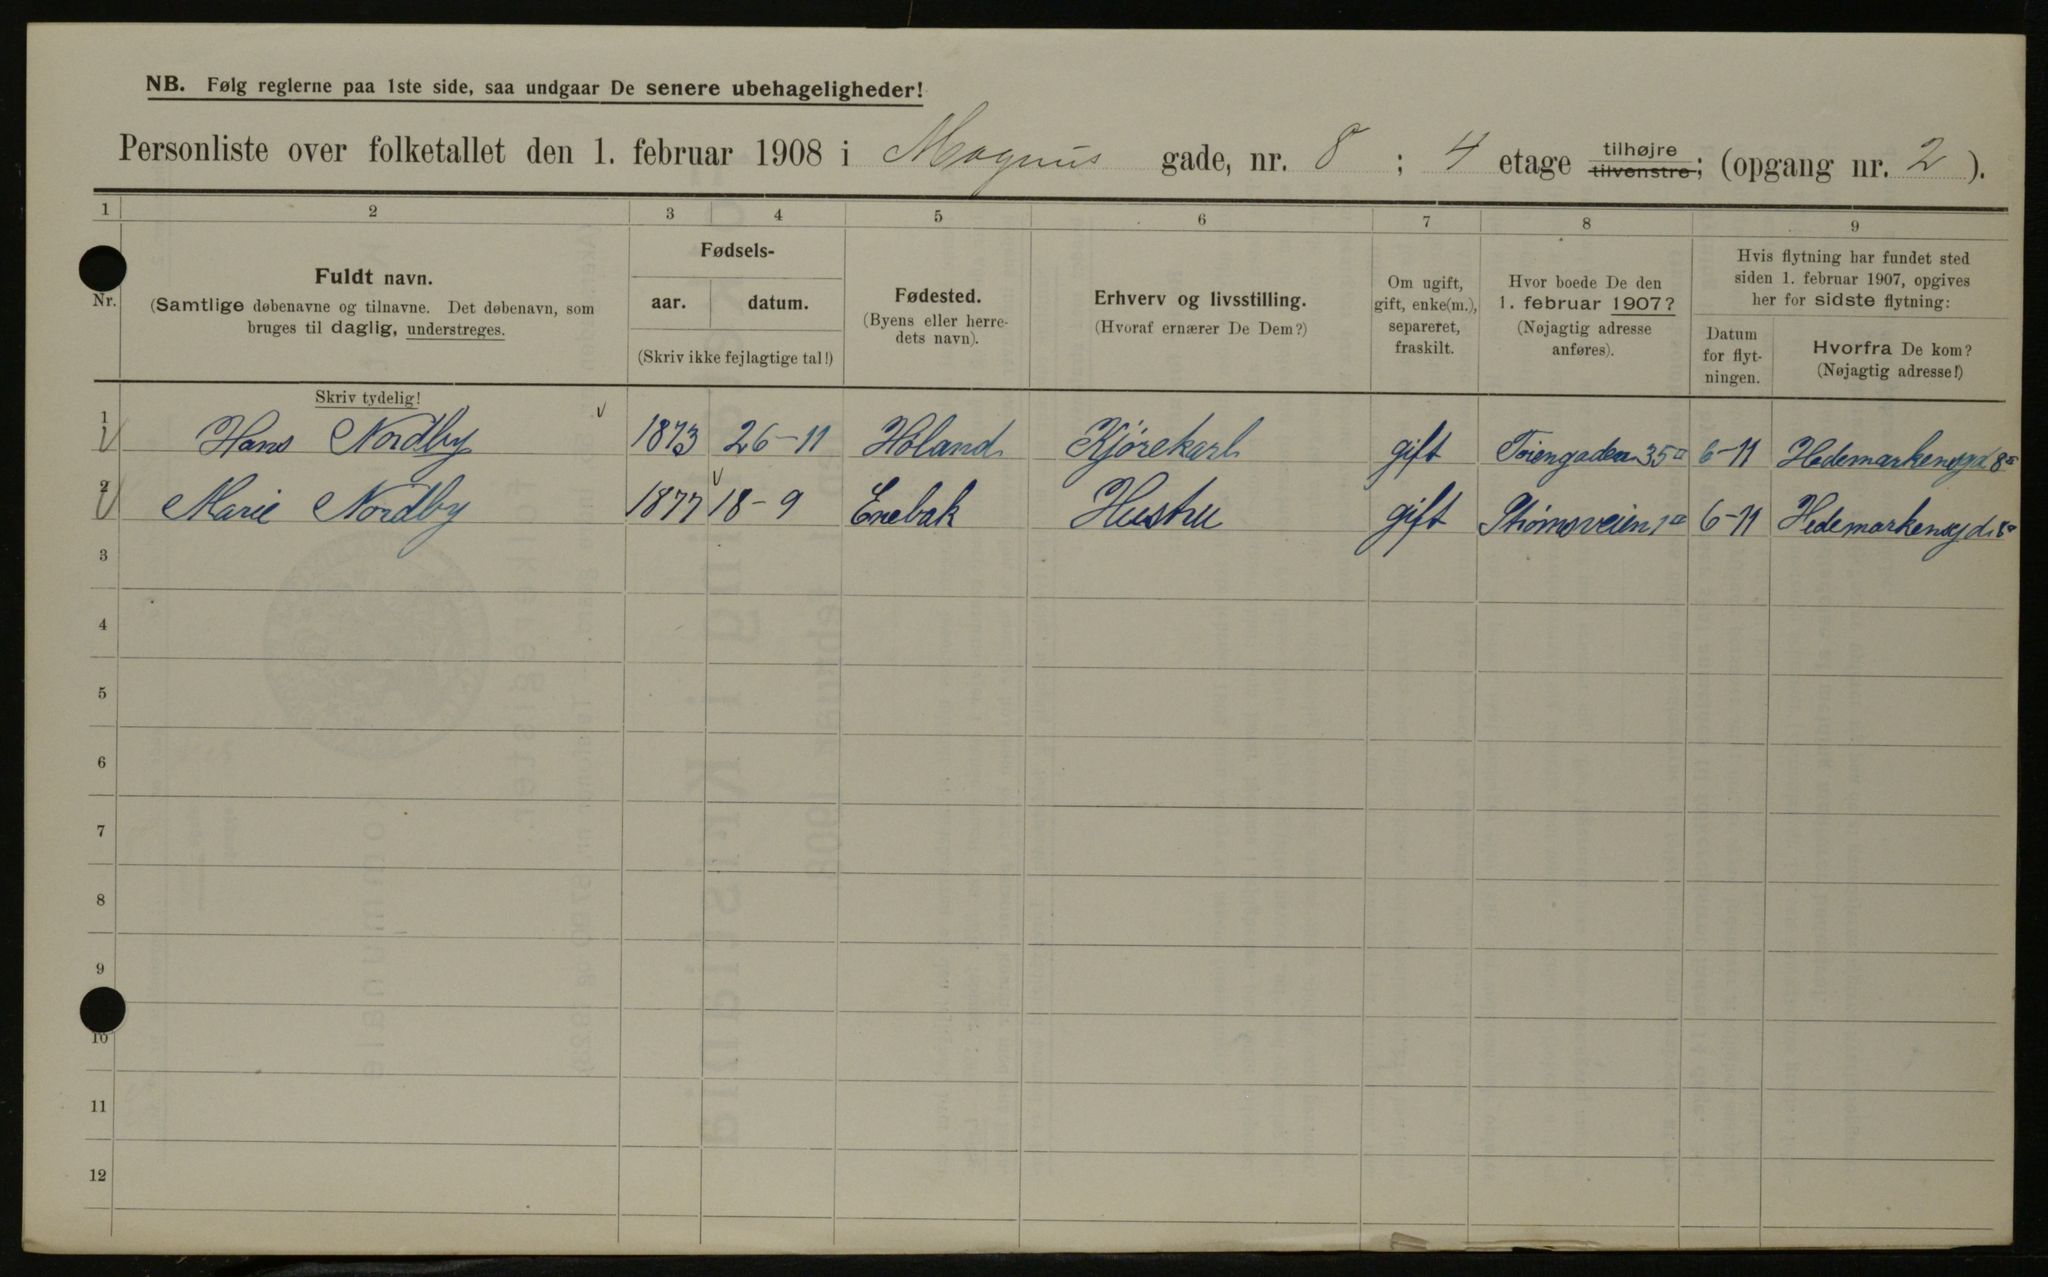 NB. Følg reglerne paa 1ste side, saa undgaar De senere ubehageligheder!
Personliste over folketallet den 1. februar 1908 i Magnus gade, nr. 8 ; 4 etage tilhøjre tilvenstre; (opgang nr. 2 ).
1 2 3 4 5 6 7 8 9
Nr.
Fuldt navn.
(Samtlige døbenavne og tilnavne. Det døbenavn, som
bruges til daglig, understreges.
Skriv tydelig!
Fødsels-
aar. datum.
(Skriv ikke fejlagtige tal!)
Fødested.
(Byens eller herre-
dets navn).
Erhverv og livsstilling.
(Hvoraf ernærer De Dem?)
Om ugift,
gift, enke(m.),
separeret,
fraskilt.
Hvor boede De den
1. februar 1907?
(Nøjagtig adresse
anføres).
Hvis flytning har fundet sted
siden 1. februar 1907, opgives
her for sidste flytning:
Datum
for flyt-
ningen.
Hvorfra De kom?
(Nøjagtig adresse!)
1 Hans Nordby 1873 26-11 Høland Kjørekarl gift Tøiengaden 35 II 6-11 Hedemarkensgd 8
2 Marie Nordby 1877 18-9 Enebak Hustru gift 6-11 Hedemarkensgd. 8
3
4
5
6
7
8
9
10
11
12